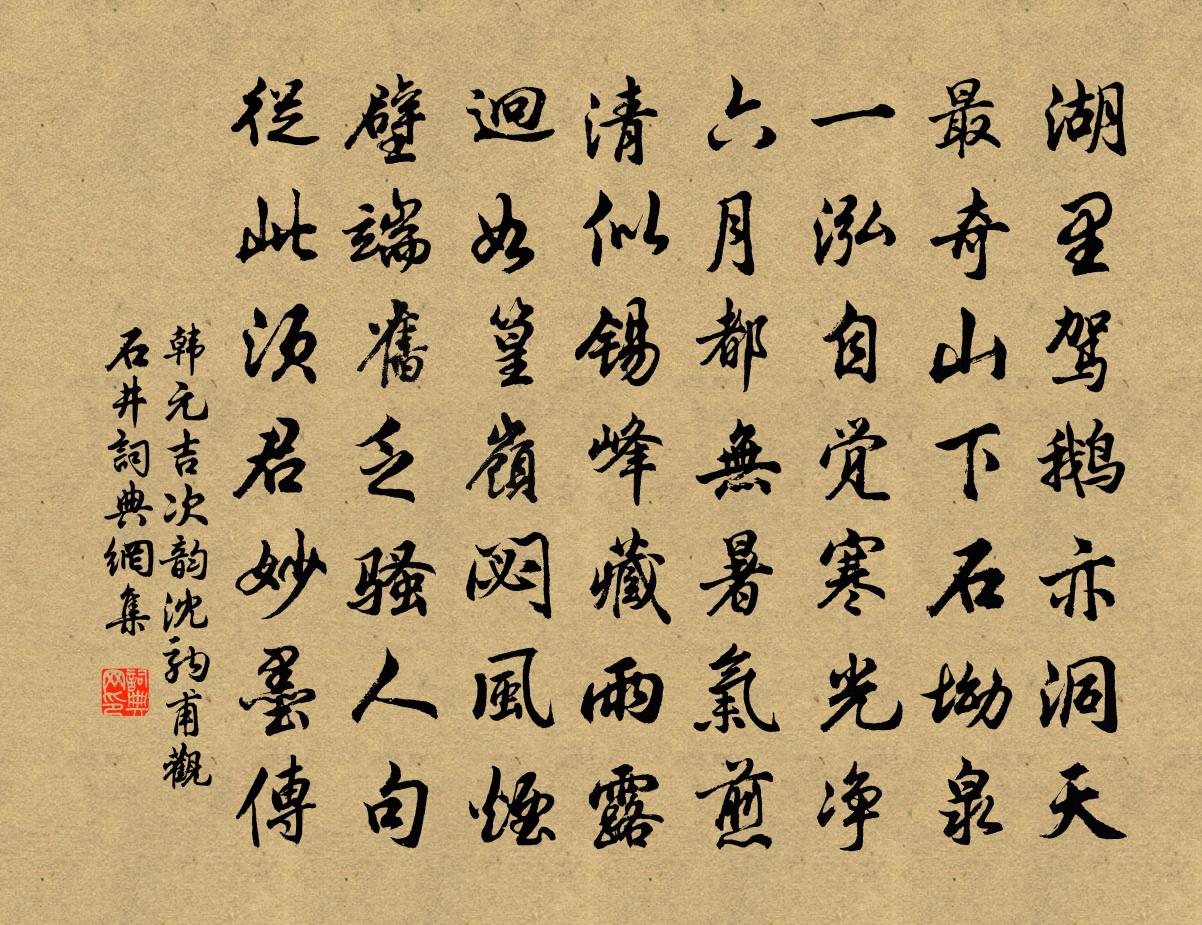 湖里駕鵝亦洞天
最奇山下石坳泉
一泓自覺寒光净
六月都無暑氣煎
清似錫峰藏雨露
迥如篁嶺閟風煙
壁端舊乏騷人句
從此須君妙墨傳
韩元吉次韵沈駒甫觀
石井詞典網集
詞典
网印